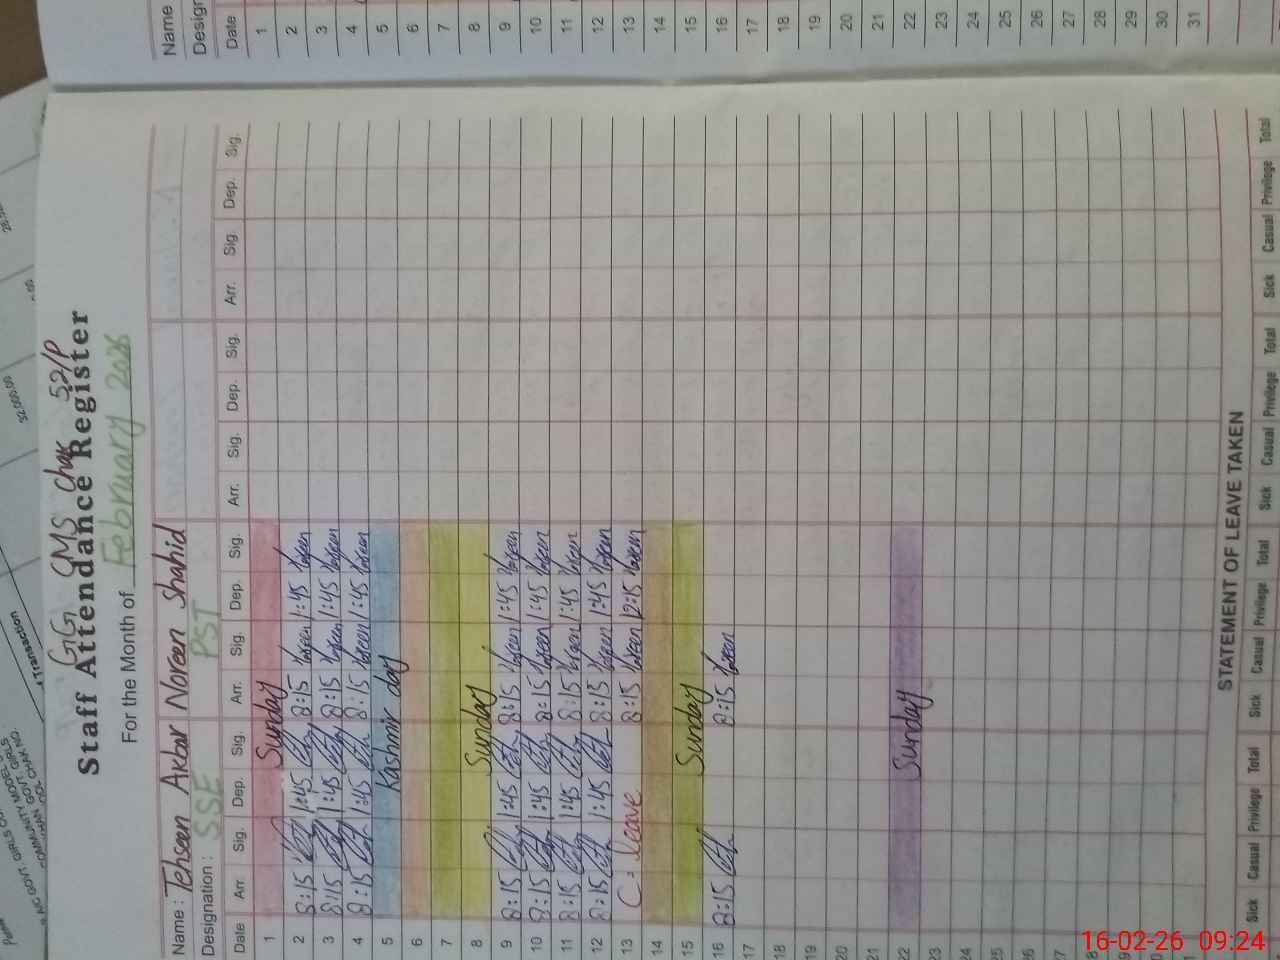 GG CMS Chak 52/P
Staff Attendance Register
For the Month of February 2026
Name : Tehseen Akbar Noreen Shahid
Designation : SSE PST
Date Arr. Sig. Dep. Sig. Arr. Sig. Dep. Sig. Arr. Sig. Dep. Sig. Arr. Sig Dep. Sig.
1 Sunday
2 8:15 1:45 8:15 Noreen 1:45 Noreen
3 8:15 1:45 8:15 Noreen 1:45 Noreen
4 8:15 1:45 8:15 Noreen 1:45 Noreen
5 Kashmir day
6
7
8 Sunday
9 8:15 1:45 8:15 Noreen 1:45 Noreen
10 8:15 1:45 8:15 Noreen 1:45 Noreen
11 8:15 1:45 8:15 Noreen 1:45 Noreen
12 8:15 1:45 8:15 Noreen 1:45 Noreen
13 C. leave 8:15 Noreen 12:15 Noreen
14
15 Sunday
16 8:15 8:15 Noreen
17
18
19
20
21
22 Sunday
23
24
25
26
27
STATEMENT OF LEAVE TAKEN
Sick Casual Privilege Total Sick Casual Privilege Total Sick Casual Privilege Total Sick Casual Privilege Total
Name
Design
Date
1
2
3
4
5
6
7
8
9
10
11
12
13
14
15
16
17
18
19
20
21
22
23
24
25
26
27
28
29
30
31
32,000.00
Transaction
16-02-26 09:24